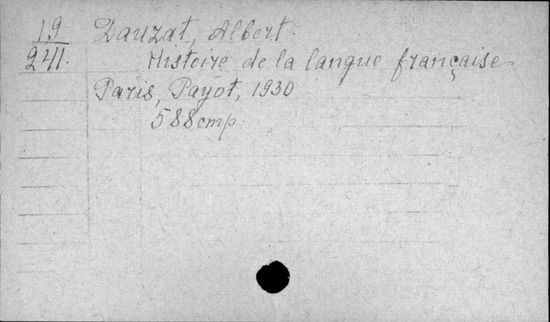 19 Dauzat, Albert.
241. Histoire de la langue française.
Paris, Payot, 1930
588 стр.